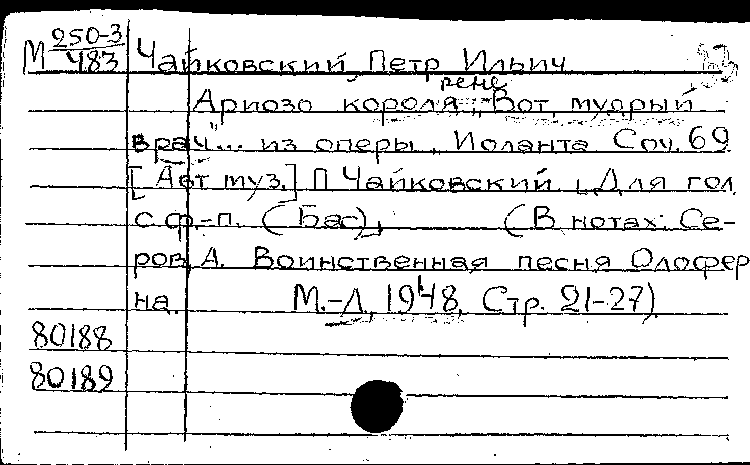 М 250-3/483 Чайковский, Петр Ильич
рене
Ариозо короля „Вот мудрый
врач"... из оперы „Иоланта Соч. 69
[Авт муз.] П Чайковский. [Для гол.
с ф.-п. (Бас)], (В нотах: Се-
ров, А. Воинственная песня Олофер
на. М.-Л, 1948, Стр. 21-27).
80188
80189